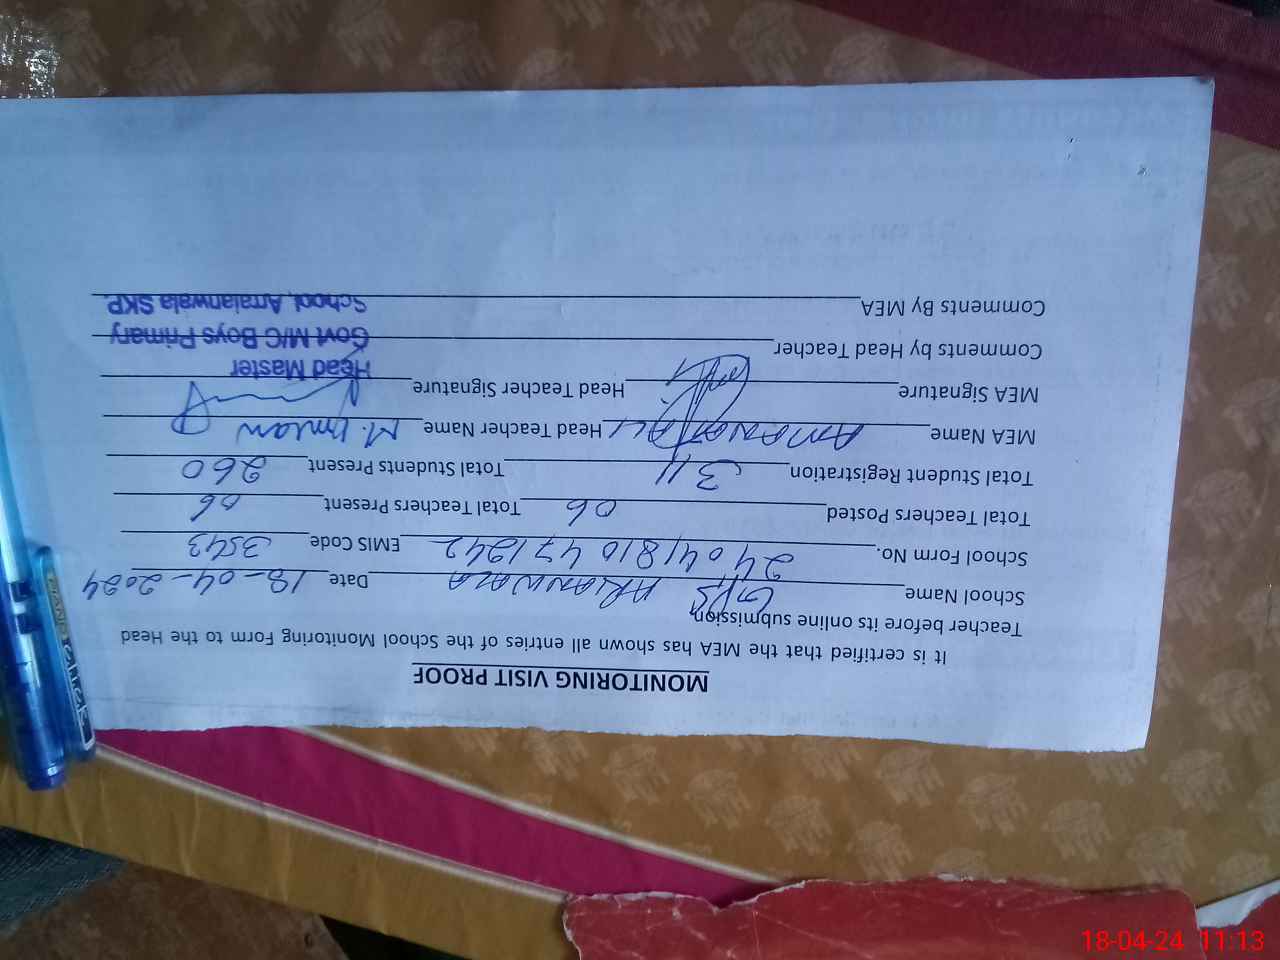 MONITORING VISIT PROOF
It is certified that the MEA has shown all entries of the School Monitoring Form to the Head
Teacher before its online submission
School Name GPS ARIANWALA Date 18-04-2024
School Form No. 24041810471242 EMIS Code 3543
Total Teachers Posted 06 Total Teachers Present 06
Total Student Registration 311 Total Students Present 260
MEA Name AMANAT ALI Head Teacher Name M. Imran
MEA Signature Head Teacher Signature
Head Master
Comments by Head Teacher Govt M/C Boys Primary
Comments By MEA School, Arraianwala SKP.
18-04-24 11:13